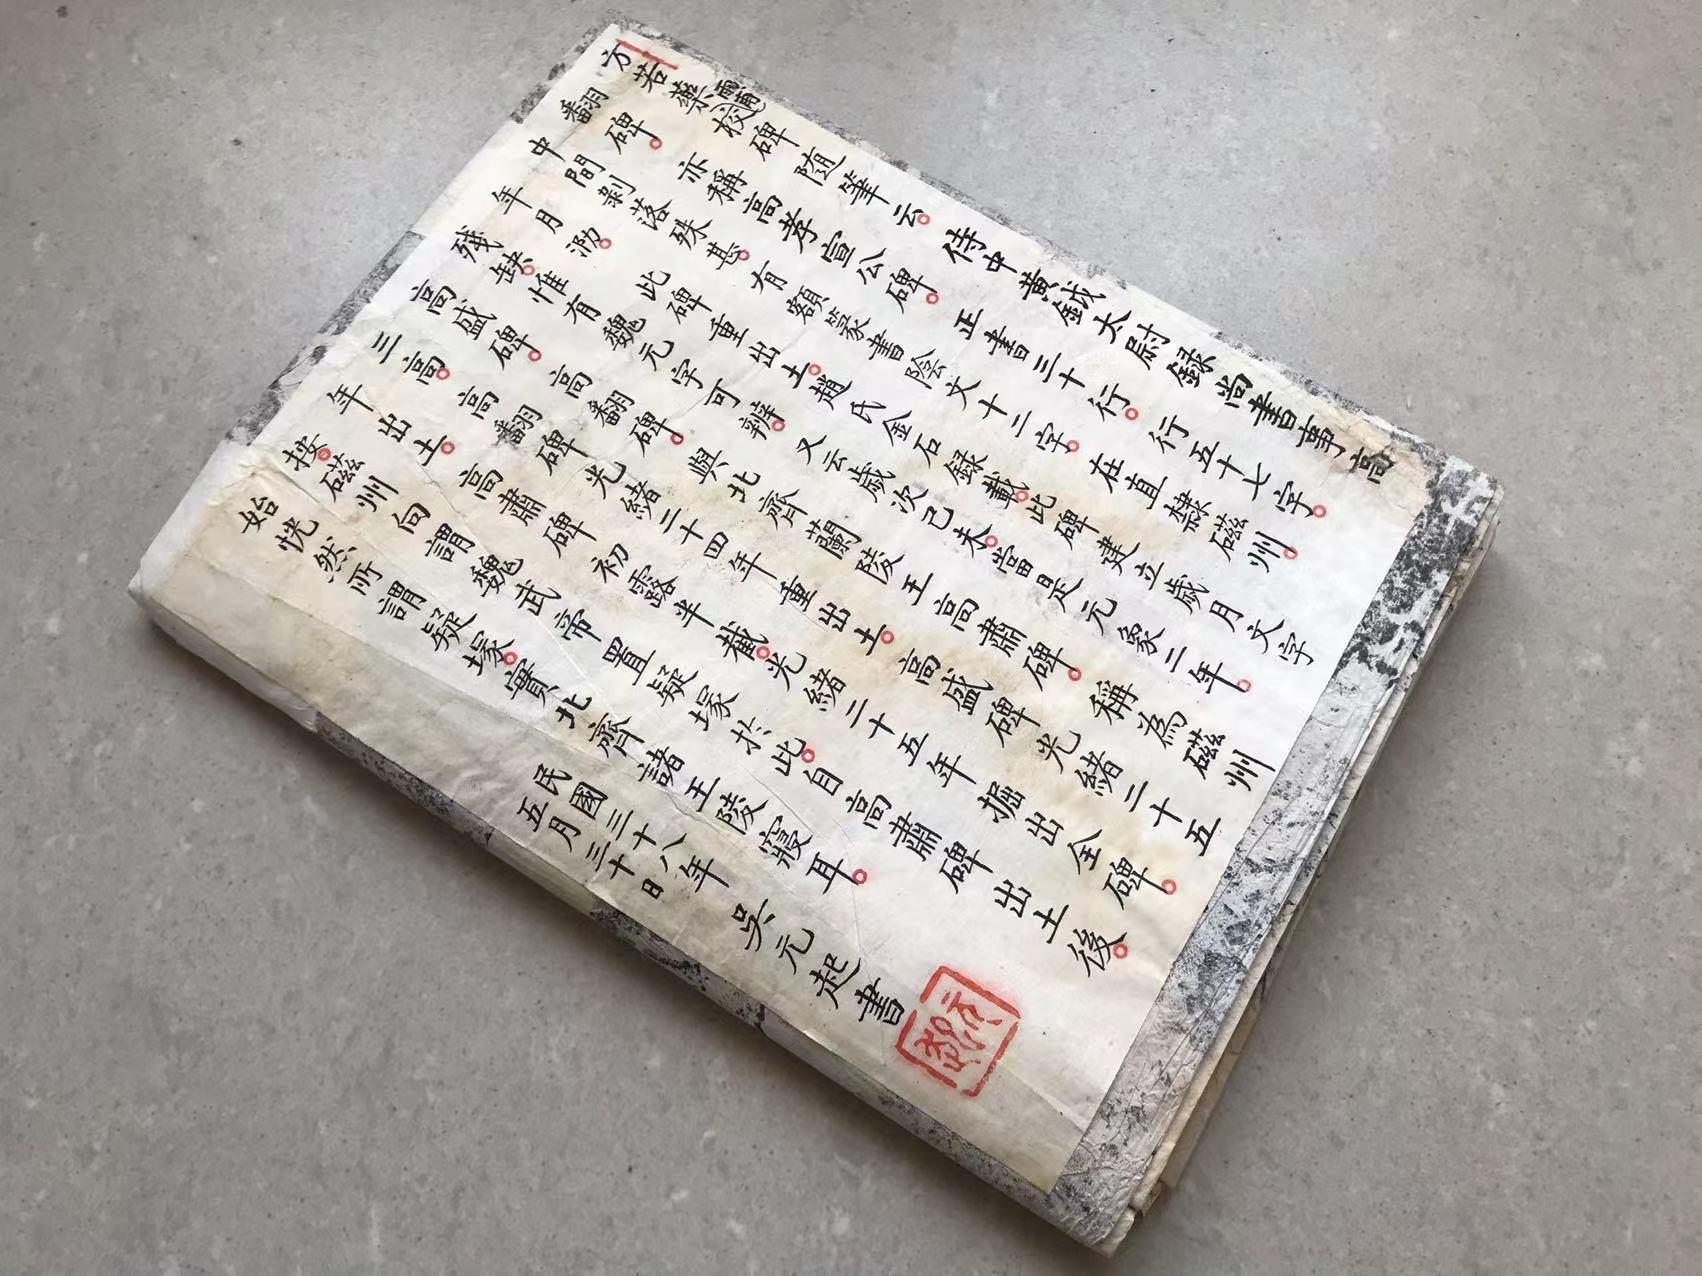 方若藥雨校碑随筆云。侍中黄鉞太尉録尚書事高
翻碑。亦稱高孝宣公碑。正書三十行。行五十七字。
中間剥落殊甚。有額篆書陰文十二字。在直隸磁州。
年月泐。此碑重出土。趙氏金石録載此碑建立歲月文字
殘缺。惟有魏元字可辨。又云歲次己未。當是元象二年。
高盛碑。高翻碑。與北齊蘭陵王高肅碑。稱為磁州
三高。高翻碑光緒三十四年重出土。高盛碑光緒二十五
年出土。高肅碑初露半截。光緒二十五年掘出全碑。
按。磁州向謂魏武帝置疑塚於此。自高肅碑出土後。
始恍然所謂疑塚。實北齊諸王陵寢耳。
民國三十八年
五月三十日
吳元起書
元起